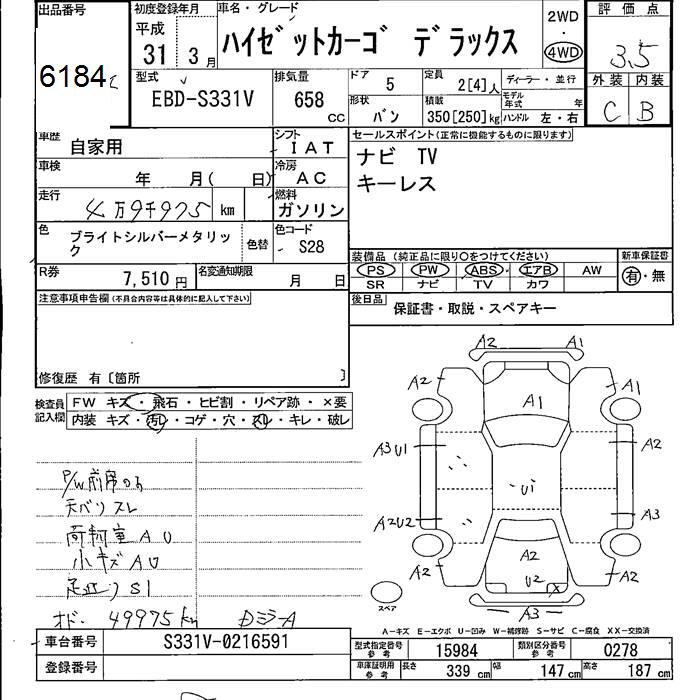 出品番号 初度登録年月 車名・グレード 2WD 評価点
平成
6184 31 3月 ハイゼットカーゴ デラックス 4WD 3.5
型式 排気量 ドア 5 定員 2[4]人 ディーラー・並行 外装 内装
EBD-S331V 658 CC 形状 バン 積載 350[250]kg モデル年式 年 ハンドル 左・右 C B
車歴 自家用 シフト IAT セールスポイント(正常に機能するものに限ります)
車検 年 月( 日) 冷房 AC ナビ TV
キーレス
走行 4万9千975 km 燃料 ガソリン
色 ブライトシルバーメタリック 色替 色コード S28
装備品 (純正品に限り○をつけてください) 新車保証書
PS PW ABS エアB AW 有・無
SR ナビ TV カワ
R券 7,510円 名変通知期限 月 日
後日品 保証書・取説・スペアキー
注意事項申告欄(不具合内容等は具体的に記入して下さい)
修復歴 有〔箇所 〕
検査員記入欄 FW キズ・飛石・ヒビ割・リペア跡・×要
内装 キズ・汚レ・コゲ・穴・スレ・キレ・破レ
A2 A1
A2 A1 A1
A3 U1 A2
U1
A2U2 A3
A2 A2 U2 A2
A3
P/W前席のみ
天バリスレ
荷物室 A U
小キズ A U
足廻り S1
オド. 49975km Dミラ-A
スペア
A-キズ E-エクボ U-凹み W-補修跡 S-サビ C-腐食 XX-交換済
車台番号 S331V-0216591
型式指定番号 参考 15984 類別区分番号 参考 0278
登録番号
車庫証明用 参考 長さ 339 cm 幅 147 cm 高さ 187 cm